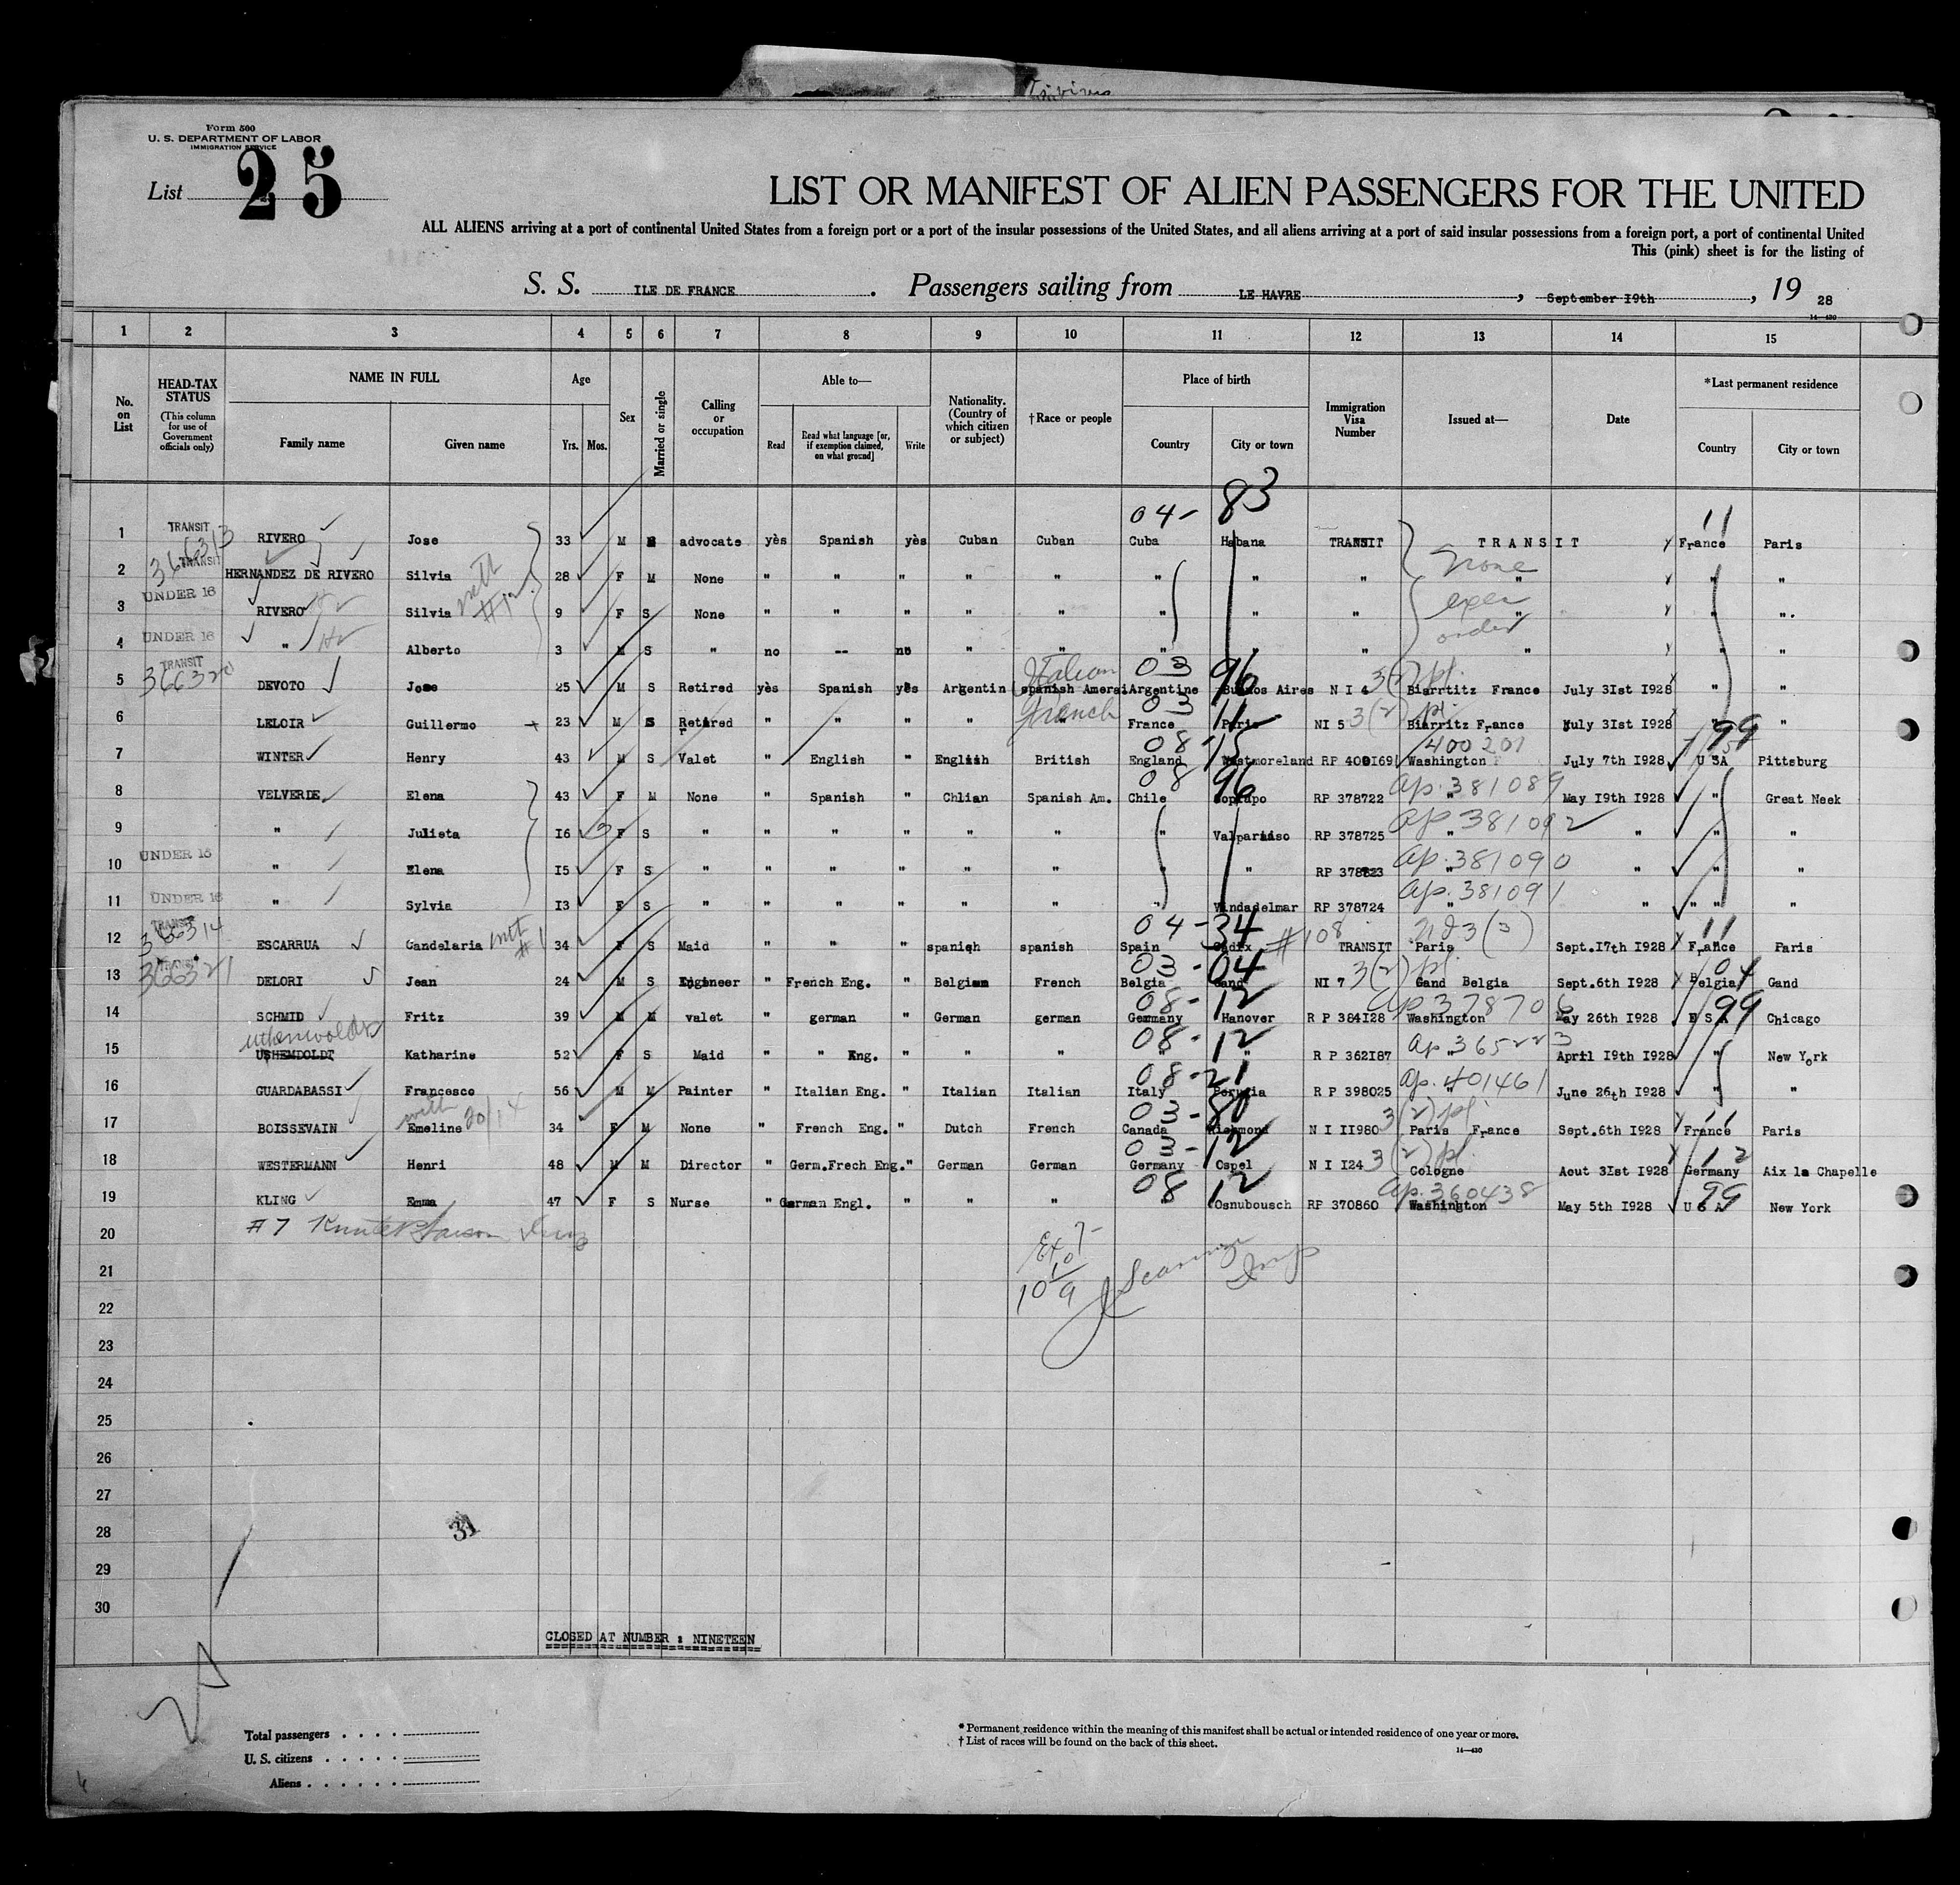 Form 500
U. S. DEPARTMENT OF LABOR
IMMIGRATION SERVICE
List 25
LIST OR MANIFEST OF ALIEN PASSENGERS FOR THE UNITED
ALL ALIENS arriving at a port of continental United States from a foreign port or a port of the insular possessions of the United States, and all aliens arriving at a port of said insular possessions from a foreign port, a port of continental United
This (pink) sheet is for the listing of
S. S. ILE DE FRANCE. Passengers sailing from LE HAVRE, September I9th, 19 28
14—430
1 2 3 4 5 6 7 8 9 10 11 12 13 14 15
No. on List
HEAD-TAX STATUS (This column for use of Government officials only)
NAME IN FULL
Family name Given name
Age
Yrs. Mos.
Sex
Married or single
Calling or occupation
Able to—
Read Read what language [or, if exemption claimed, on what ground] Write
Nationality. (Country of which citizen or subject)
†Race or people
Place of birth
Country City or town
Immigration Visa Number
Issued at—
Date
*Last permanent residence
Country City or town
04- 83 11
1 TRANSIT RIVERO Jose 33 M advocate yès Spanish yès Cuban Cuban Cuba Habana TRANSIT TRANSIT France Paris
366313
2 TRANSIT HERNANDEZ DE RIVERO Silvia 28 F M None " " " " " " " " none " " "
3 UNDER 16 RIVERO Silvia with #1 9 F S None " " " " " " " " exec " " ".
4 UNDER 16 " Alberto 3 M S " no -- no " " " " " order " " "
Italian 03 96 3(2) pl.
5 TRANSIT 366320 DEVOTO Jose 25 M S Retired yès Spanish yès Argentin spanish Amersi Argentine Buenos Aires N I 4 Biarrtitz France July 3Ist I928 " "
French 03 11 3(2) pl.
6 LELOIR Guillermo 23 M S Retired " " " " " France Paris NI 5 Biarritz France July 3Ist I928 " "
08-15 400201 99
7 WINTER Henry 43 M S Valet " English " English British England Westmoreland RP 400I69 Washington July 7th I928 USA Pittsburg
08 96 ap. 381089
8 VELVERDE Elena 43 F M None " Spanish " Chlian Spanish Am. Chile Copiapo RP 378722 " May I9th I928 " Great Neek
ap 381092
9 " Julieta I6 F S " " " " " " " Valparaiso RP 378725 " " " "
ap. 381090
10 UNDER 16 " Elena I5 F S " " " " " " " " RP 378723 " " " "
ap. 381091
11 UNDER 16 " Sylvia I3 F S " " " " " " " Vindadelmar RP 378724 " " " "
04-34 #108 3(3) 11
12 TRANSIT 366314 ESCARRUA Candelaria with #1 34 F S Maid " " " spanish spanish Spain Cadix TRANSIT Paris Sept.I7th I928 France Paris
03-04 3(2) pl. 04
13 TRANSIT 366321 DELORI Jean 24 M S Engineer " French Eng. " Belgian French Belgia Gand NI 7 Gand Belgia Sept.6th I928 Belgia Gand
08-12 ap 378706 99
14 SCHMID Fritz 39 M M valet " german " German german Germany Hanover R P 384I28 Washington May 26th I928 U S A Chicago
08-12 ap 365223
15 USHEMDOLDT Katharine 52 F S Maid " " Eng. " " " " " R P 362I87 " April I9th I928 " New York
08-21 ap. 401461
16 GUARDABASSI Francesco 56 M M Painter " Italian Eng. " Italian Italian Italy Perugia R P 398025 " June 26th I928 " "
with 20/14 03-80 3(2) pl. 11
17 BOISSEVAIN Emeline 34 F M None " French Eng. " Dutch French Canada Richmond N I II980 Paris France Sept.6th I928 France Paris
03-12 3(2) pl. 12
18 WESTERMANN Henri 48 M M Director " Germ.Frech Eng." German German Germany Ospel N I I24 Cologne Aout 3Ist I928 Germany Aix la Chapelle
08 12 ap. 360438 99
19 KLING Emma 47 F S Nurse " German Engl. " " " Osnubousch RP 370860 Washington May 5th I928 U S A New York
20 #7
21
22
23
24
25
26
27
28 31
29
30
CLOSED AT NUMBER : NINETEEN
Total passengers . . . .
U. S. citizens . . . . .
Aliens . . . . . .
*Permanent residence within the meaning of this manifest shall be actual or intended residence of one year or more.
†List of races will be found on the back of this sheet.
14—430